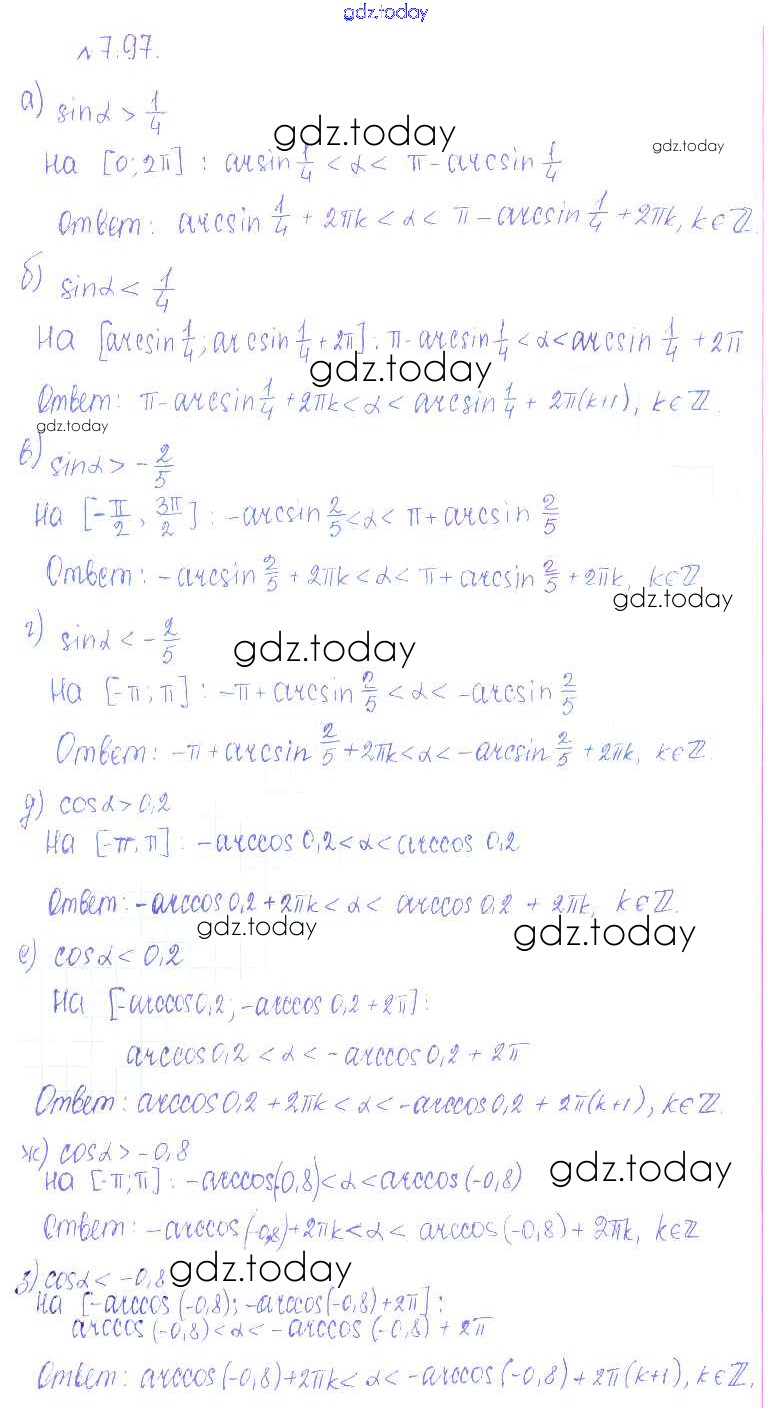 gdz.today
№7.97.
а) sinα > 1/4
gdz.today
gdz.today
На [0; 2π] : arcsin 1/4 < α < π - arcsin 1/4
Ответ: arcsin 1/4 + 2πk < α < π - arcsin 1/4 + 2πk, k∈ℤ.
б) sinα < 1/4
На [arcsin 1/4; arcsin 1/4 + 2π] : π - arcsin 1/4 < α < arcsin 1/4 + 2π
gdz.today
Ответ: π - arcsin 1/4 + 2πk < α < arcsin 1/4 + 2π(k+1), k∈ℤ.
gdz.today
в) sinα > - 2/5
На [-π/2, 3π/2] : -arcsin 2/5 < α < π + arcsin 2/5
Ответ: -arcsin 2/5 + 2πk < α < π + arcsin 2/5 + 2πk, k∈ℤ
gdz.today
г) sinα < - 2/5
gdz.today
На [-π; π] : -π + arcsin 2/5 < α < -arcsin 2/5
Ответ: -π + arcsin 2/5 + 2πk < α < -arcsin 2/5 + 2πk, k∈ℤ.
д) cosα > 0,2
На [-π, π] : -arccos 0,2 < α < arccos 0,2
Ответ: -arccos 0,2 + 2πk < α < arccos 0,2 + 2πk, k∈ℤ.
gdz.today
gdz.today
е) cosα < 0,2
На [-arccos 0,2; -arccos 0,2 + 2π] :
arccos 0,2 < α < -arccos 0,2 + 2π
Ответ: arccos 0,2 + 2πk < α < -arccos 0,2 + 2π(k+1), k∈ℤ.
ж) cosα > -0,8
gdz.today
на [-π; π] : -arccos(-0,8) < α < arccos(-0,8)
Ответ: -arccos(-0,8) + 2πk < α < arccos(-0,8) + 2πk, k∈ℤ
з) cosα < -0,8
gdz.today
на [-arccos(-0,8); -arccos(-0,8) + 2π] :
arccos(-0,8) < α < -arccos(-0,8) + 2π
Ответ: arccos(-0,8) + 2πk < α < -arccos(-0,8) + 2π(k+1), k∈ℤ.